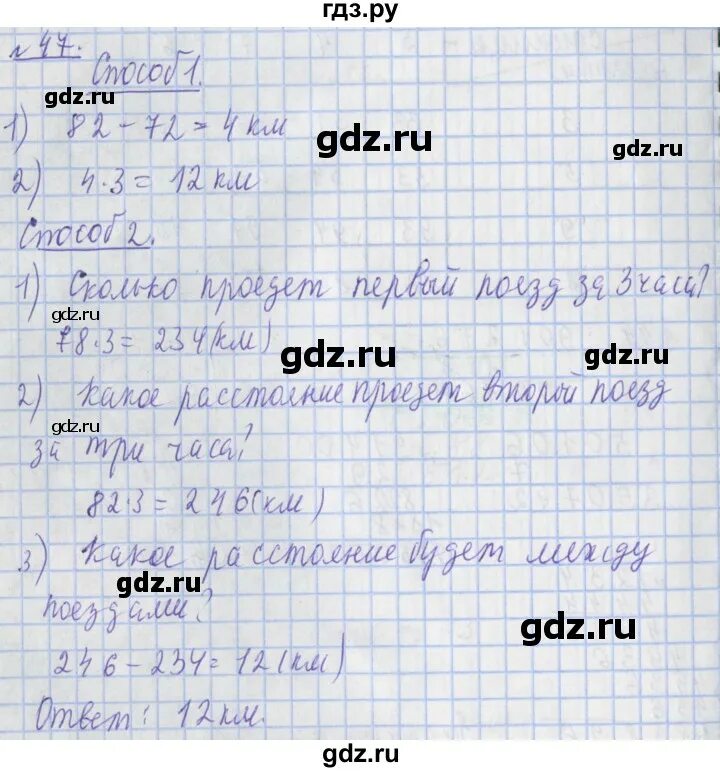 гдз.ру
№ 47.
Способ 1.
gdz.ru
1) 82 - 72 = 4 км
gdz.ru
gdz.ru
2) 4·3 = 12 км
Способ 2.
gdz.ru
1) Сколько проедет первый поезд за 3 часа?
gdz.ru
78·3 = 234(км)
gdz.ru
gdz.ru
2) Какое расстояние проедет второй поезд
gdz.ru
за три часа?
82·3 = 246(км)
3) Какое расстояние будет между
gdz.ru
поездами?
gdz.ru
246 - 234 = 12 (км)
Ответ: 12 км.
gdz.ru